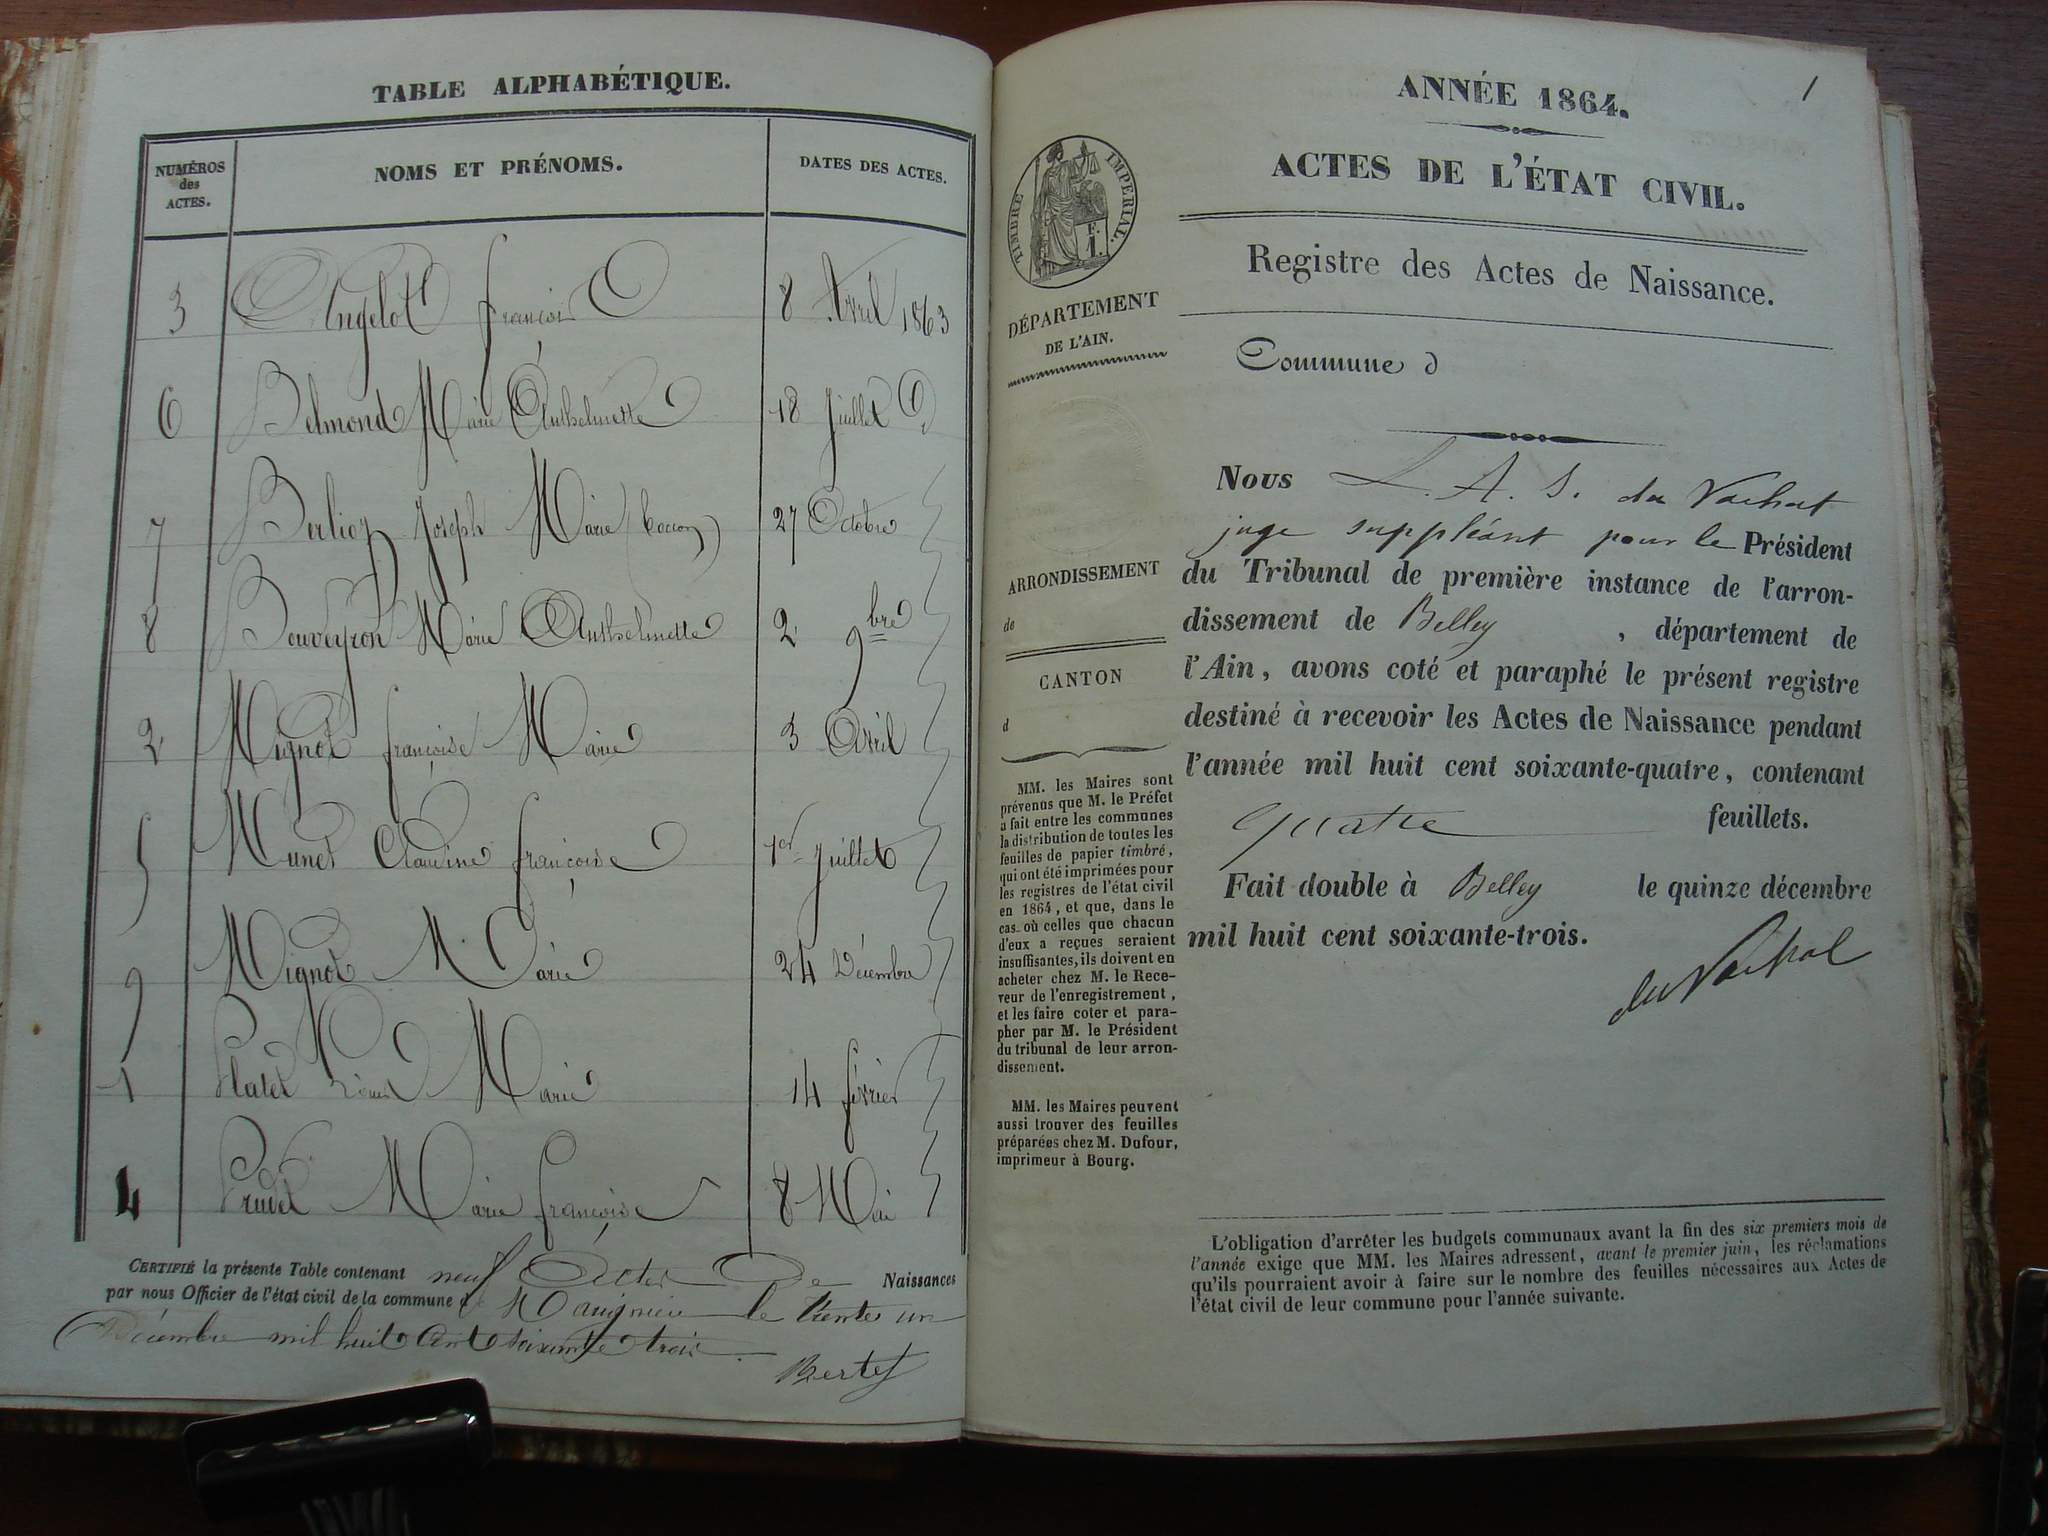 TABLE ALPHABÉTIQUE.
NUMÉROS
des
ACTES.
NOMS ET PRÉNOMS.
DATES DES ACTES.
3 Angelot françois 8 Avril 1863
6 Belmond Marie Anthelmette 18 Juillet
7 Berlioz Joseph Marie 27 Octobre
8 Bouveyron Marie Anthelmette 2 9bre
2 Mignot françoise Marie 3 Avril
5 Munet Claudine françoise 1er Juillet
9 Mignot Marie 24 Décembre
1 Platet Marie 14 février
4 Prudet Marie françoise 8 Mai
CERTIFIÉ la présente Table contenant neuf Actes De Naissances
par nous Officier de l'état civil de la commune de le trente un
Décembre mil huit Cent soixante trois
Bertet
1
ANNÉE 1864.
ACTES DE L'ÉTAT CIVIL.
Registre des Actes de Naissance.
Commune d
TIMBRE IMPERIAL.
F.
1.
DÉPARTEMENT
DE L'AIN.
ARRONDISSEMENT
de
CANTON
d
MM. les Maires sont
prévenus que M. le Préfet
a fait entre les communes
la distribution de toutes les
feuilles de papier timbré,
qui ont été imprimées pour
les registres de l'état civil
en 1864, et que, dans le
cas où celles que chacun
d'eux a reçues seraient
insuffisantes, ils doivent en
acheter chez M. le Rece-
veur de l'enregistrement,
et les faire coter et para-
pher par M. le Président
du tribunal de leur arron-
dissement.
MM. les Maires peuvent
aussi trouver des feuilles
préparées chez M. Dufour,
imprimeur à Bourg.
Nous L. A. S. du Vachat
juge suppléant pour le Président
du Tribunal de première instance de l'arron-
dissement de Belley , département de
l'Ain, avons coté et paraphé le présent registre
destiné à recevoir les Actes de Naissance pendant
l'année mil huit cent soixante-quatre, contenant
quatre feuillets.
Fait double à Belley le quinze décembre
mil huit cent soixante-trois.
du Vachat
L'obligation d'arrêter les budgets communaux avant la fin des six premiers mois de
l'année exige que MM. les Maires adressent, avant le premier juin, les réclamations
qu'ils pourraient avoir à faire sur le nombre des feuilles nécessaires aux Actes de
l'état civil de leur commune pour l'année suivante.